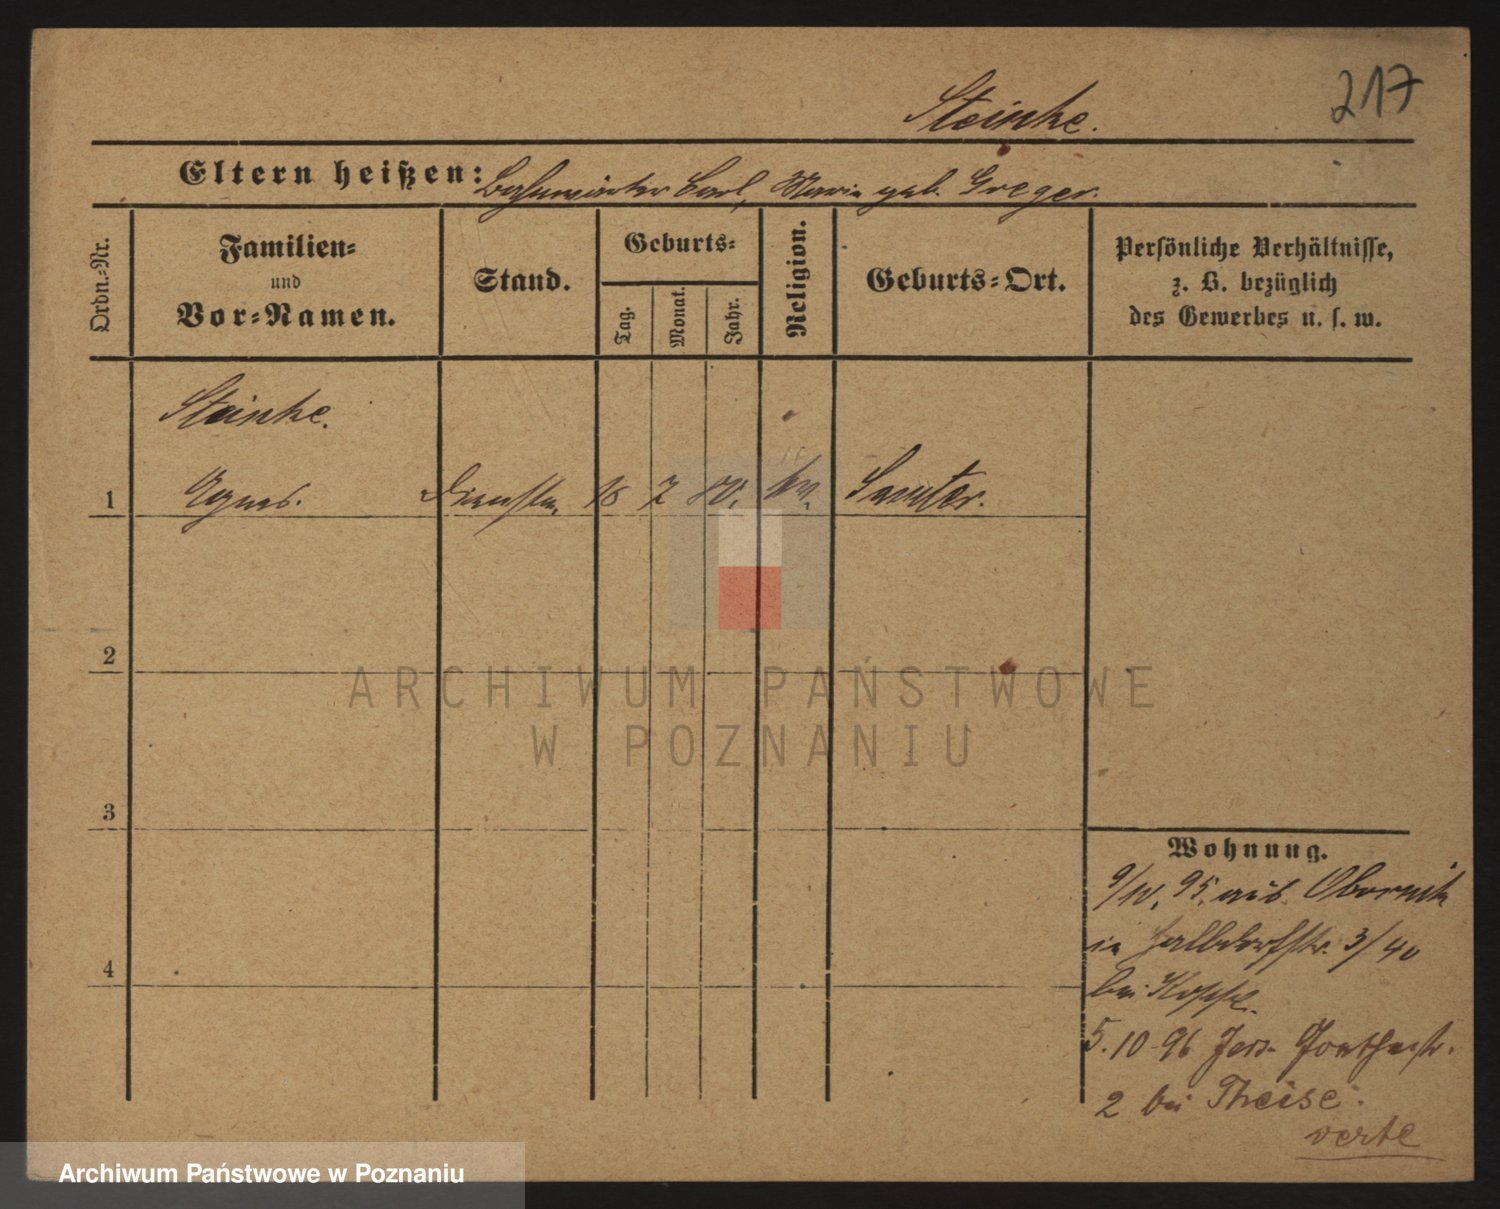 217
Steinke.
Eltern heißen: Bahnwärter Carl, Marie geb. Greger.
Ordn.=Nr.
Familien=
und
Vor=Namen.
Stand.
Geburts=
Tag.
Monat.
Jahr.
Religion.
Geburts=Ort.
Persönliche Verhältnisse,
z. B. bezüglich
des Gewerbes u. s. w.
Steinke.
1 Agnes. 7 80. ev. Samter.
2
3
4
Wohnung.
9/10. 95. aus Obornik
in Halbdorfstr. 3/40
bei
5. 10 96
2 bei Theise.
verte
ARCHIWUM PAŃSTWOWE
W POZNANIU
Archiwum Państwowe w Poznaniu